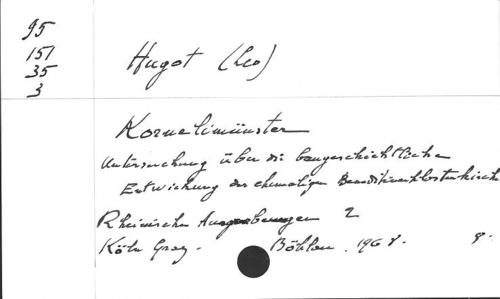 95
151
35
3
Hugot (Leo)
Kornelimünster
Untersuchung über die baugeschichtliche
Entwicklung der ehemaligen Benediktinerklosterkirche
Rheinische Ausgrabungen 2
Köln Graz. Böhlau. 1968. 8.